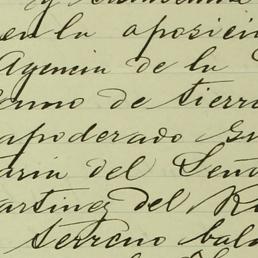 en la oposici
Agencia de la
amo de tierr
apoderado Gu
aria del Seño
artinez del R
terreno bald